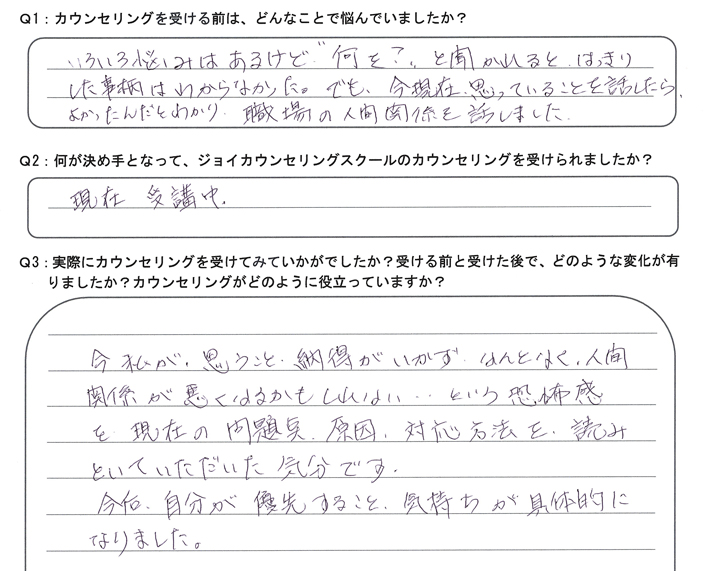 Q1：カウンセリングを受ける前は、どんなことで悩んでいましたか？
いろいろ悩みはあるけど"何を？"と聞かれると、はっきり
した事柄はわからなかった。でも、今現在、思っていることを話したら、
よかったんだとわかり、職場の人間関係を話しました。
Q2：何が決め手となって、ジョイカウンセリングスクールのカウンセリングを受けられましたか？
現在 受講中。
Q3：実際にカウンセリングを受けてみていかがでしたか？受ける前と受けた後で、どのような変化が有
りましたか？カウンセリングがどのように役立っていますか？
今私が、思うこと、納得がいかず、なんとなく、人間
関係が悪くなるかもしれない‥という恐怖感
を現在の問題点、原因、対応方法を、読み
といていただいた気分です。
今后、自分が優先すること、気持ちが具体的に
なりました。